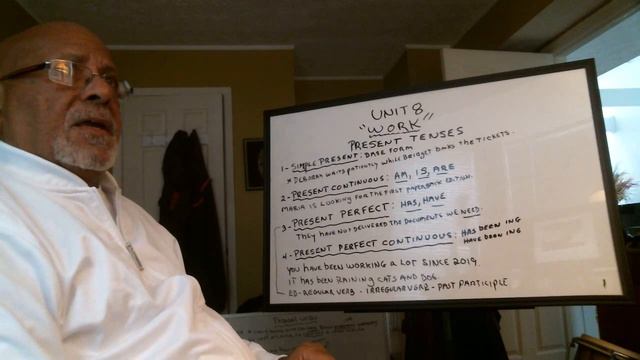 UNIT 8
"WORK"
PRESENT TENSES
1- SIMPLE PRESENT: BASE FORM
* DEBORAH WAITS PATIENTLY WHILE BRIDGET BOOKS THE TICKETS.
2- PRESENT CONTINUOUS: AM, IS, ARE
MARIA IS LOOKING FOR THE FIRST PAPERBACK EDITION.
3- PRESENT PERFECT: HAS, HAVE
THEY HAVE NOT DELIVERED THE DOCUMENTS WE NEED.
4- PRESENT PERFECT CONTINUOUS: HAS BEEN ING
HAVE BEEN ING
YOU HAVE BEEN WORKING A LOT SINCE 2019.
IT HAS BEEN RAINING CATS AND DOG.
ED-REGULAR VERB - IRREGULAR VERB - PAST PARTICIPLE